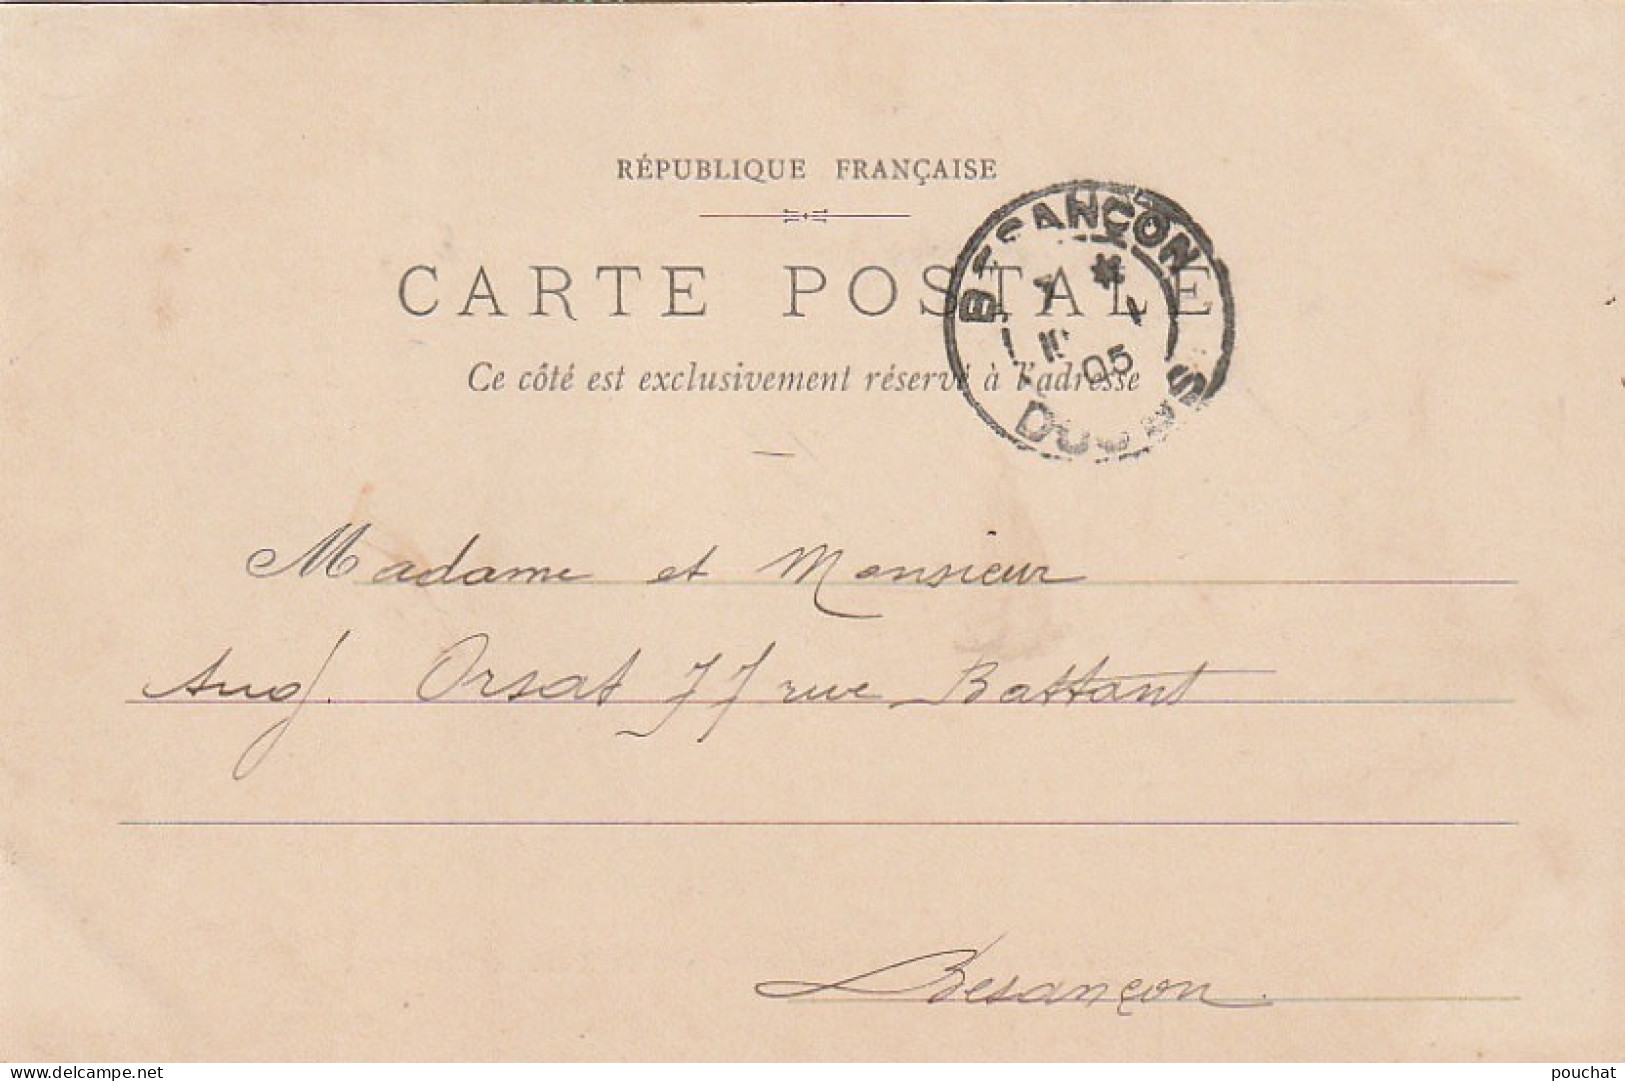 RÉPUBLIQUE FRANÇAISE
CARTE POSTALE
Ce côté est exclusivement réservé à l'adresse
BESANÇON
7 * 1
05
DOUBS
Madame et Monsieur
Aug. Orsat 77 rue Battant
Besançon
www.delcampe.net
pouchat